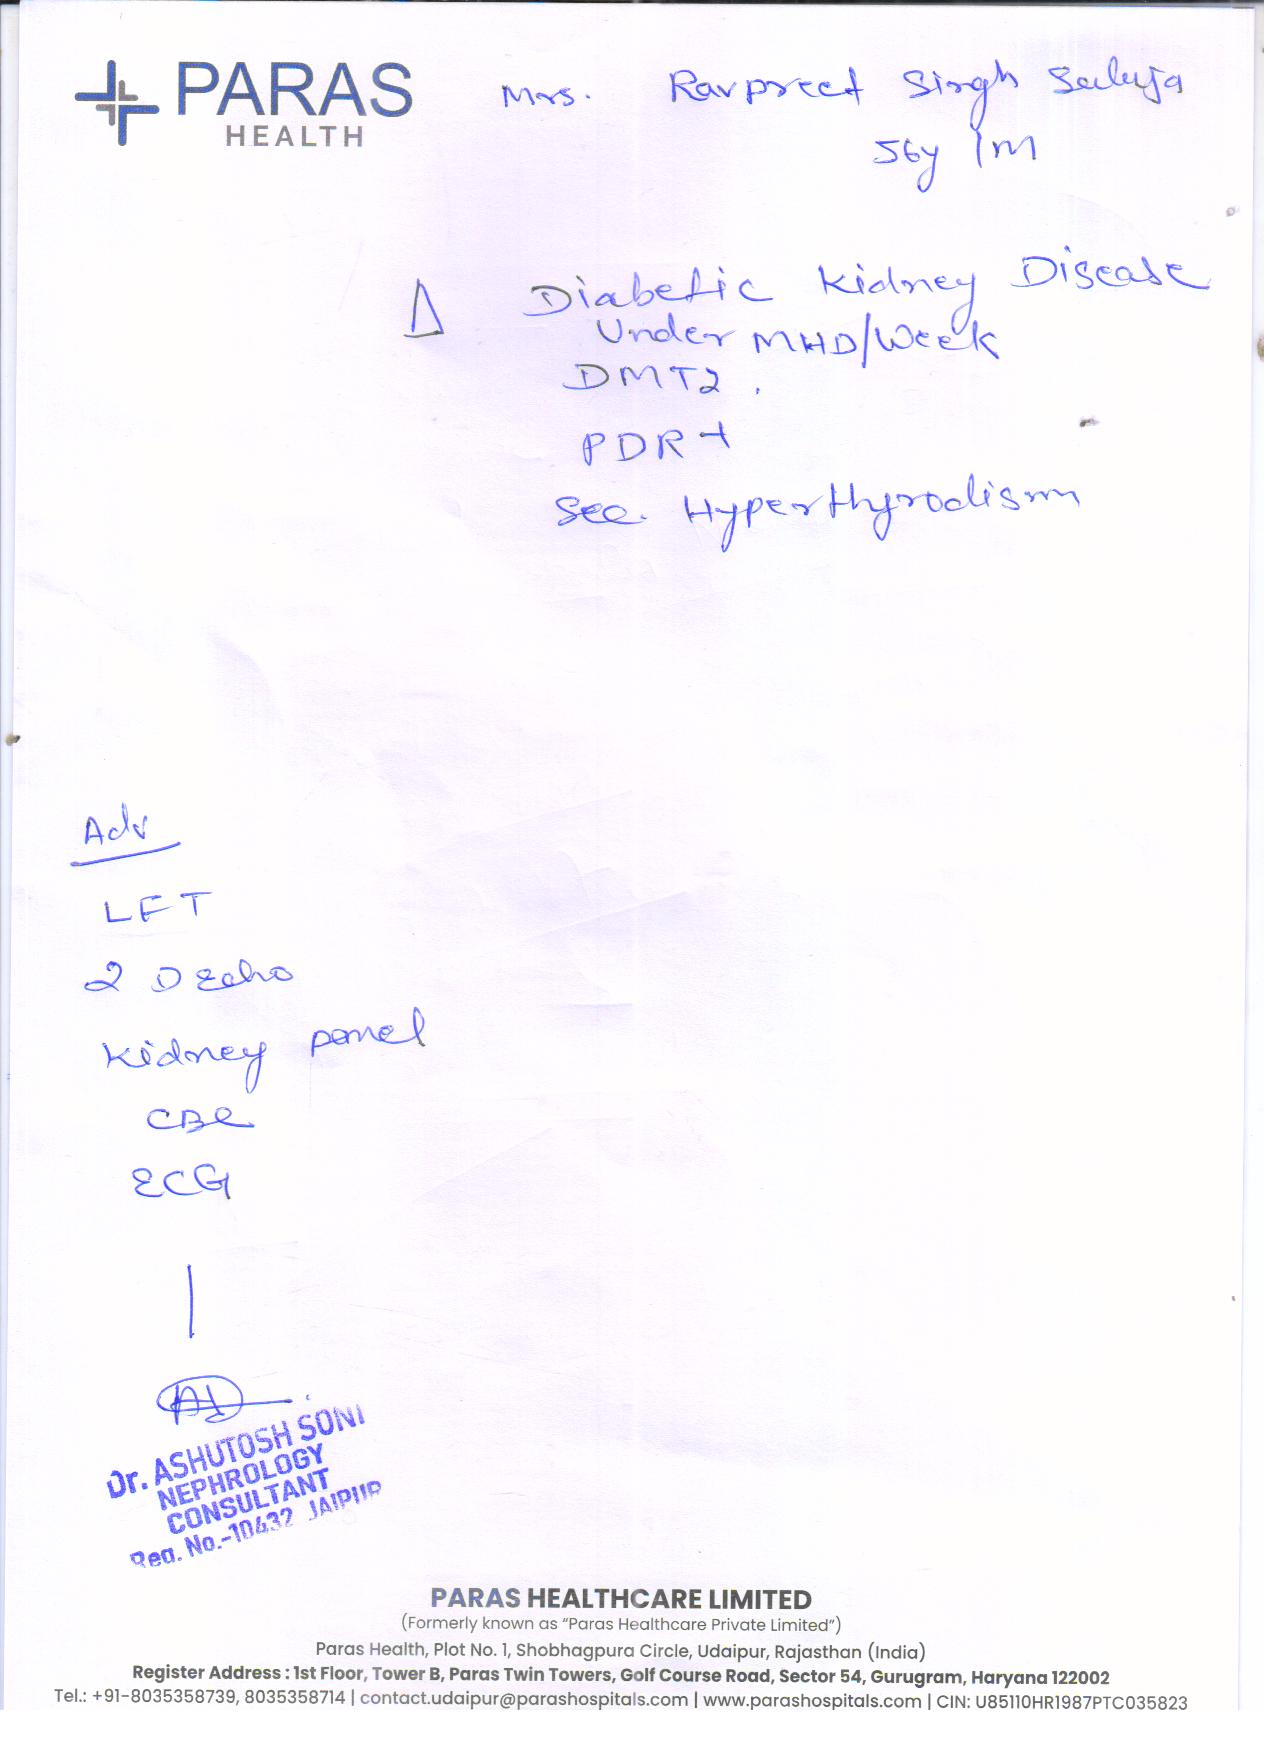 PARAS
HEALTH
Mrs. Ravpreet Singh Saluja
56y / M
Δ Diabetic Kidney Disease
Under MHD/Week
DMT2.
PDR +
Sec. Hyperthyrodism
Adv
LFT
2 D Echo
Kidney panel
CBC
ECG
Dr. ASHUTOSH SONI
NEPHROLOGY
CONSULTANT
Reg. No.-10432 JAIPUR
PARAS HEALTHCARE LIMITED
(Formerly known as “Paras Healthcare Private Limited”)
Paras Health, Plot No. 1, Shobhagpura Circle, Udaipur, Rajasthan (India)
Register Address : 1st Floor, Tower B, Paras Twin Towers, Golf Course Road, Sector 54, Gurugram, Haryana 122002
Tel.: +91-8035358739, 8035358714 | contact.udaipur@parashospitals.com | www.parashospitals.com | CIN: U85110HR1987PTC035823